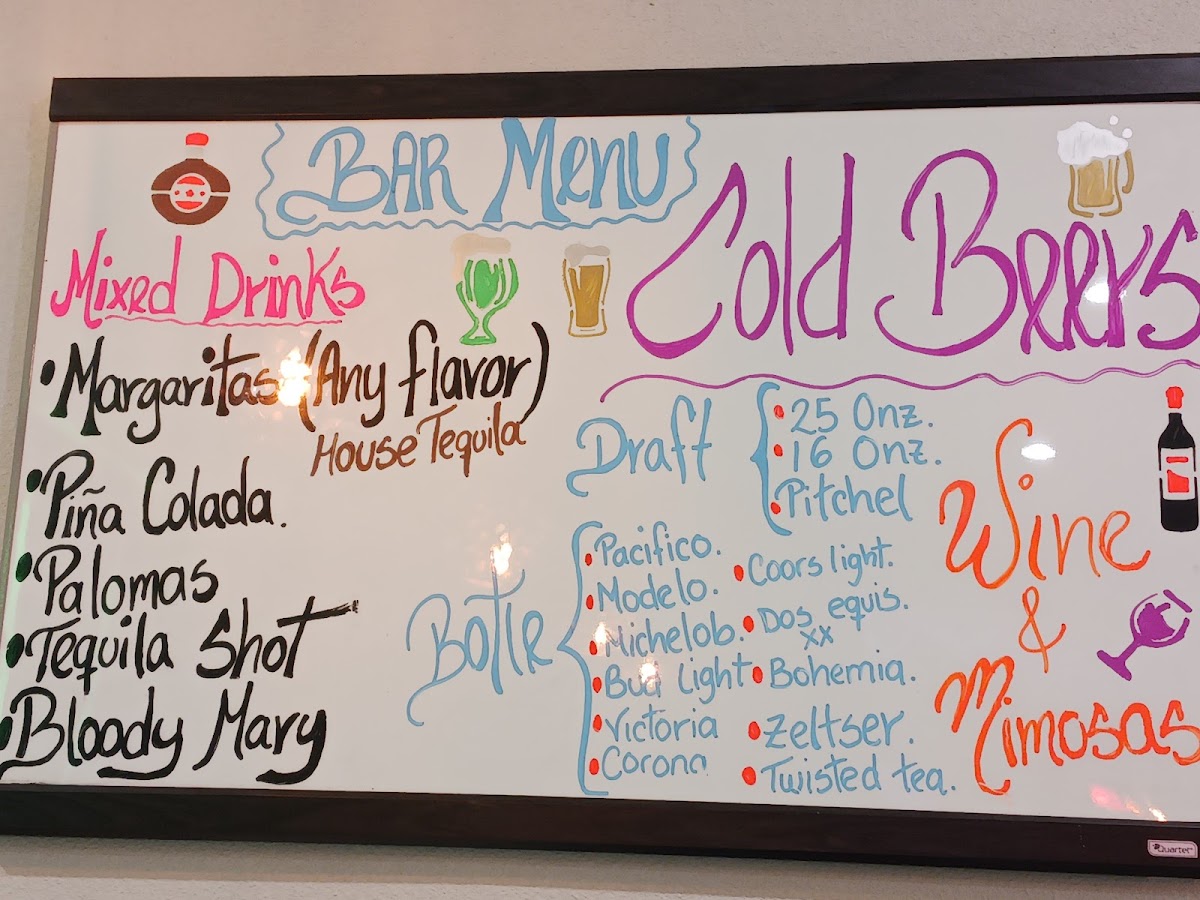 BAR Menu
Mixed Drinks
Margaritas (Any flavor)
House Tequila
Piña Colada.
Palomas
Tequila Shot
Bloody Mary
Cold Beers
Draft
25 Onz.
16 Onz.
Pitchel
Botle
Pacifico.
Modelo.
Michelob.
Bud Light
Victoria
Corona
Coors light.
Dos equis.
xx
Bohemia.
Zeltser.
Twisted tea.
Wine
&
Mimosas
Quartet